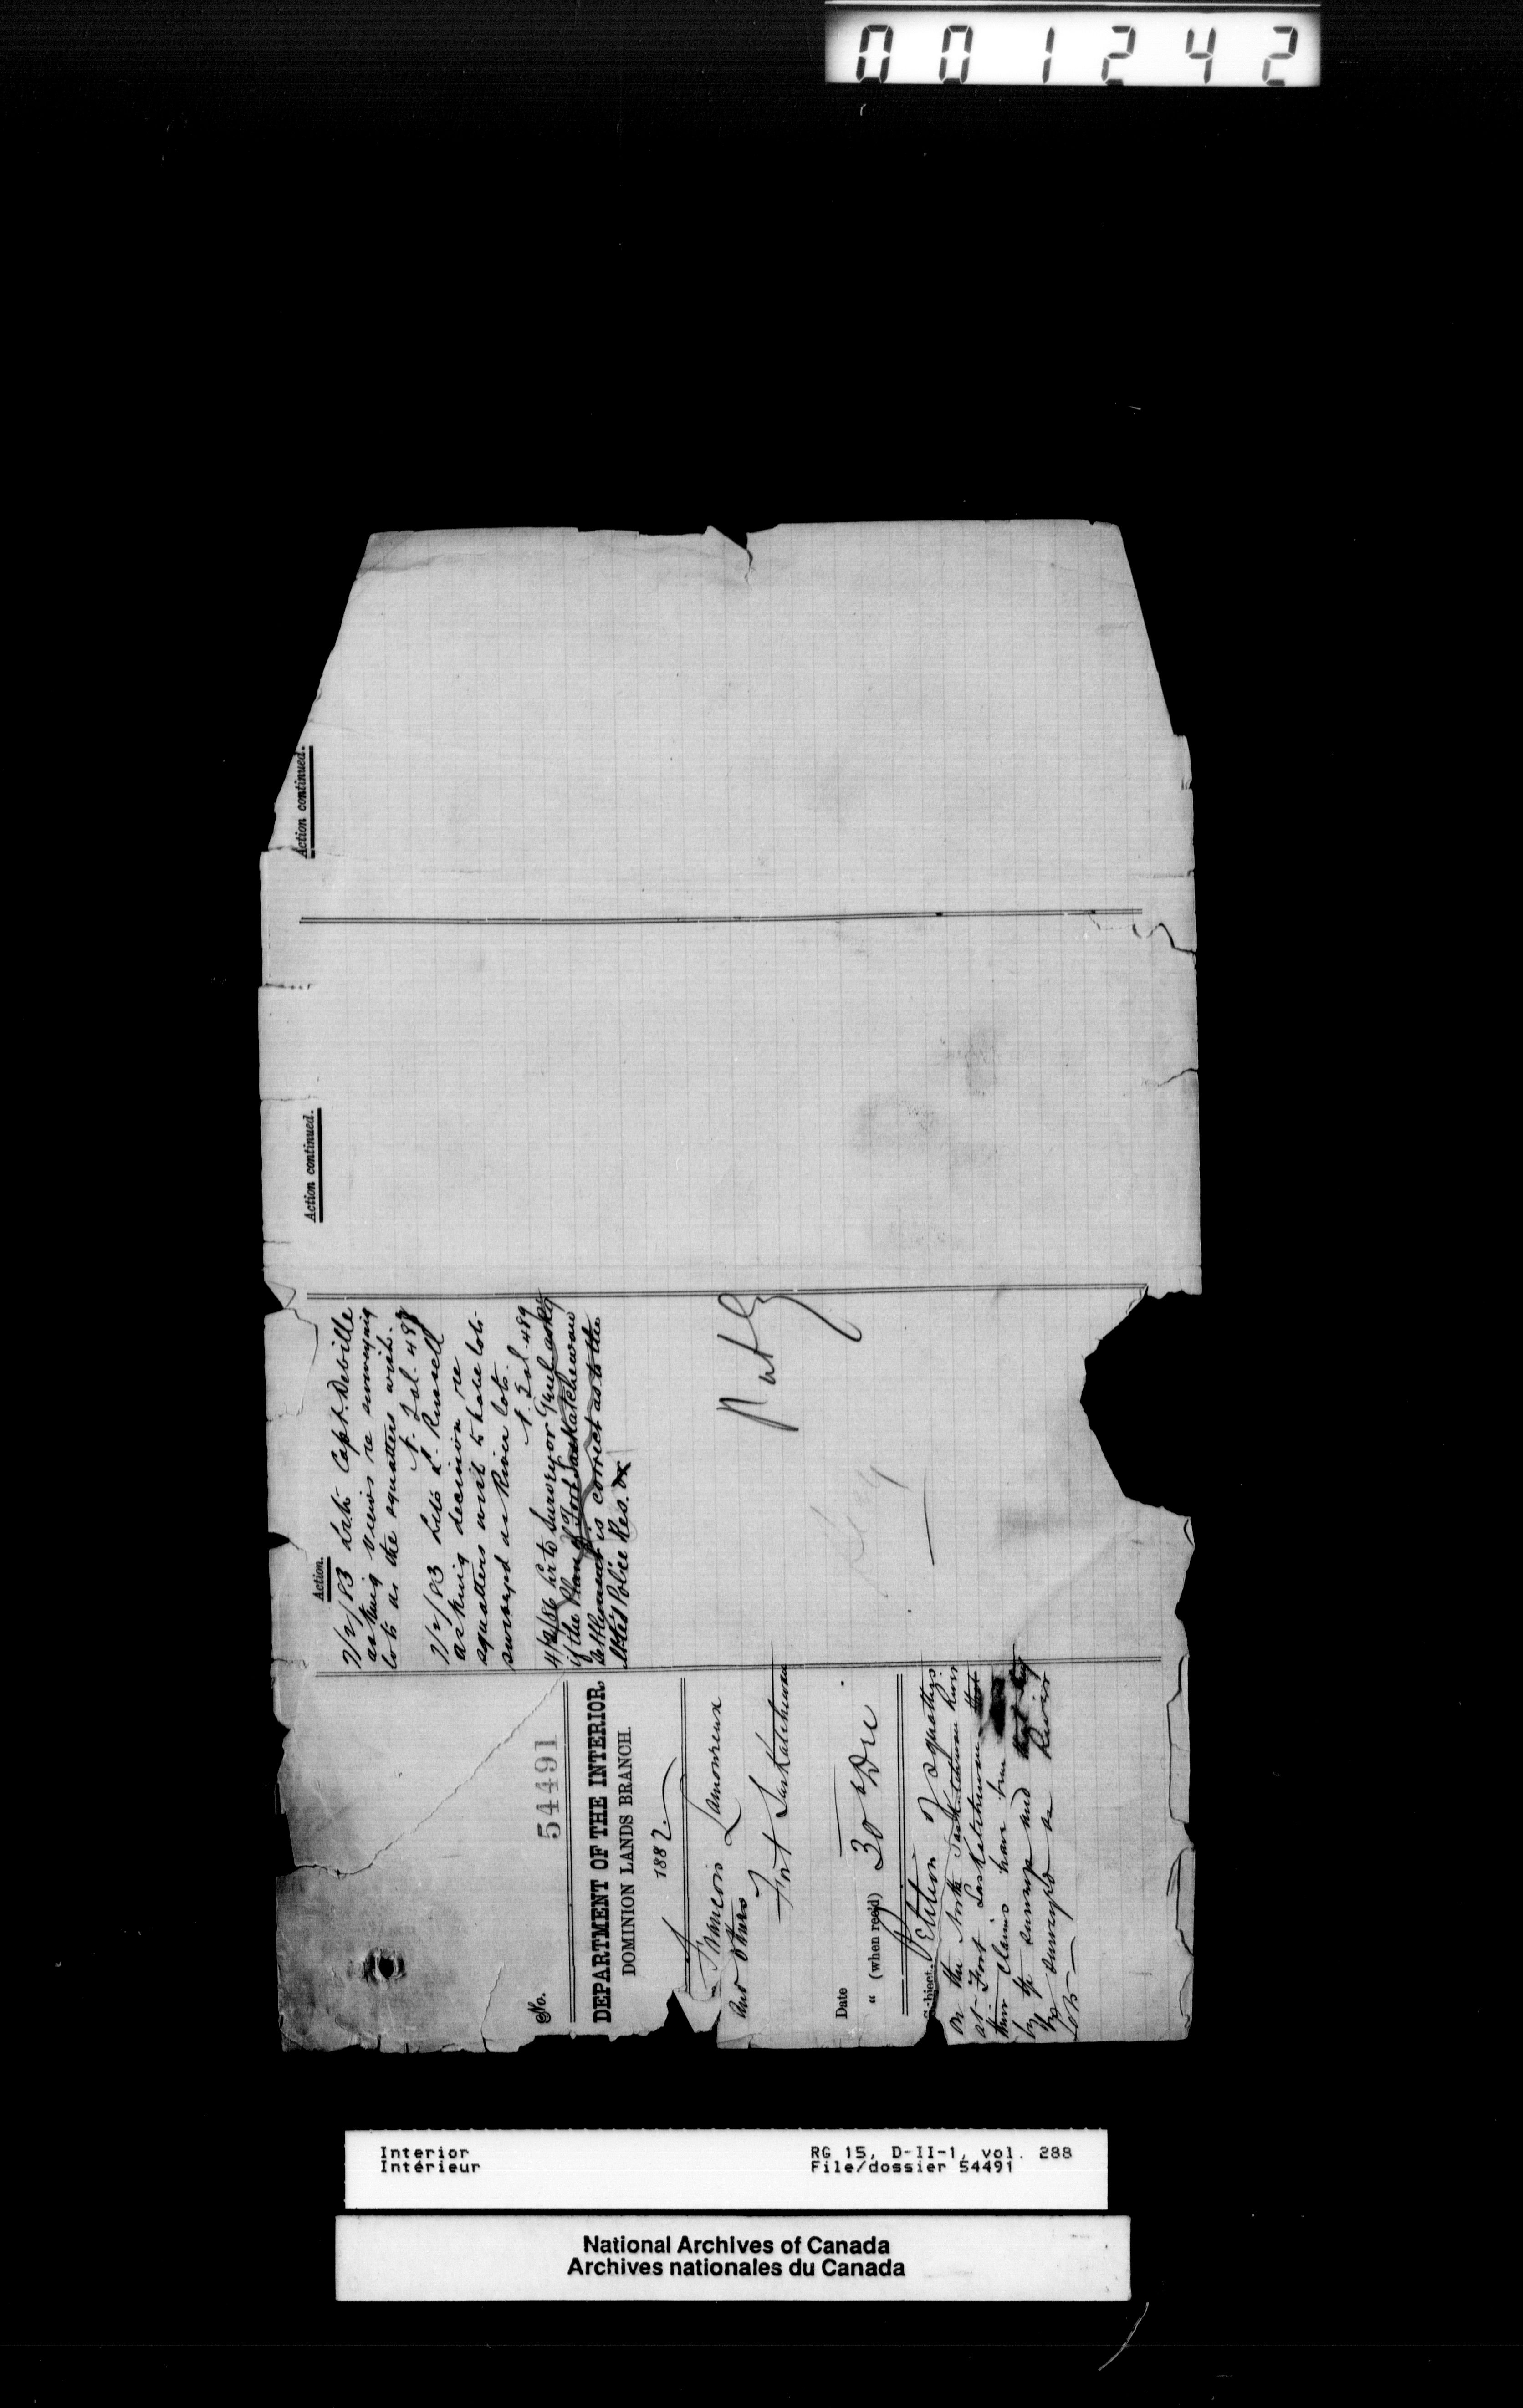 001242
No. 54491
DEPARTMENT OF THE INTERIOR,
DOMINION LANDS BRANCH.
1882.
Francois Lamoureux
and others
Fort Saskatchewan
Date
" (when rec'd) 30th Dec
Subject. Petition of squatters
on the North Saskatchewan River
at Fort Saskatchewan that
their claims have been
by the survey and
be surveyed as River
Lots
Action.
7/2/83 Let to Capt. Deville
asking views re surveying
lots as the squatters wish.
Fol. 488
7/2/83 Let to L. Russell
asking decision re
squatters wish to have lots
surveyed as River lots.
Fol. 489
4/2/86 Lr to Surveyor Genl askg
if the Plan of Fort Saskatchewan
Settlement is correct as to the
Mtd Police Res.
Action continued.
Action continued.
Interior
Intérieur
RG 15, D-II-1, vol. 288
File/dossier 54491
National Archives of Canada
Archives nationales du Canada